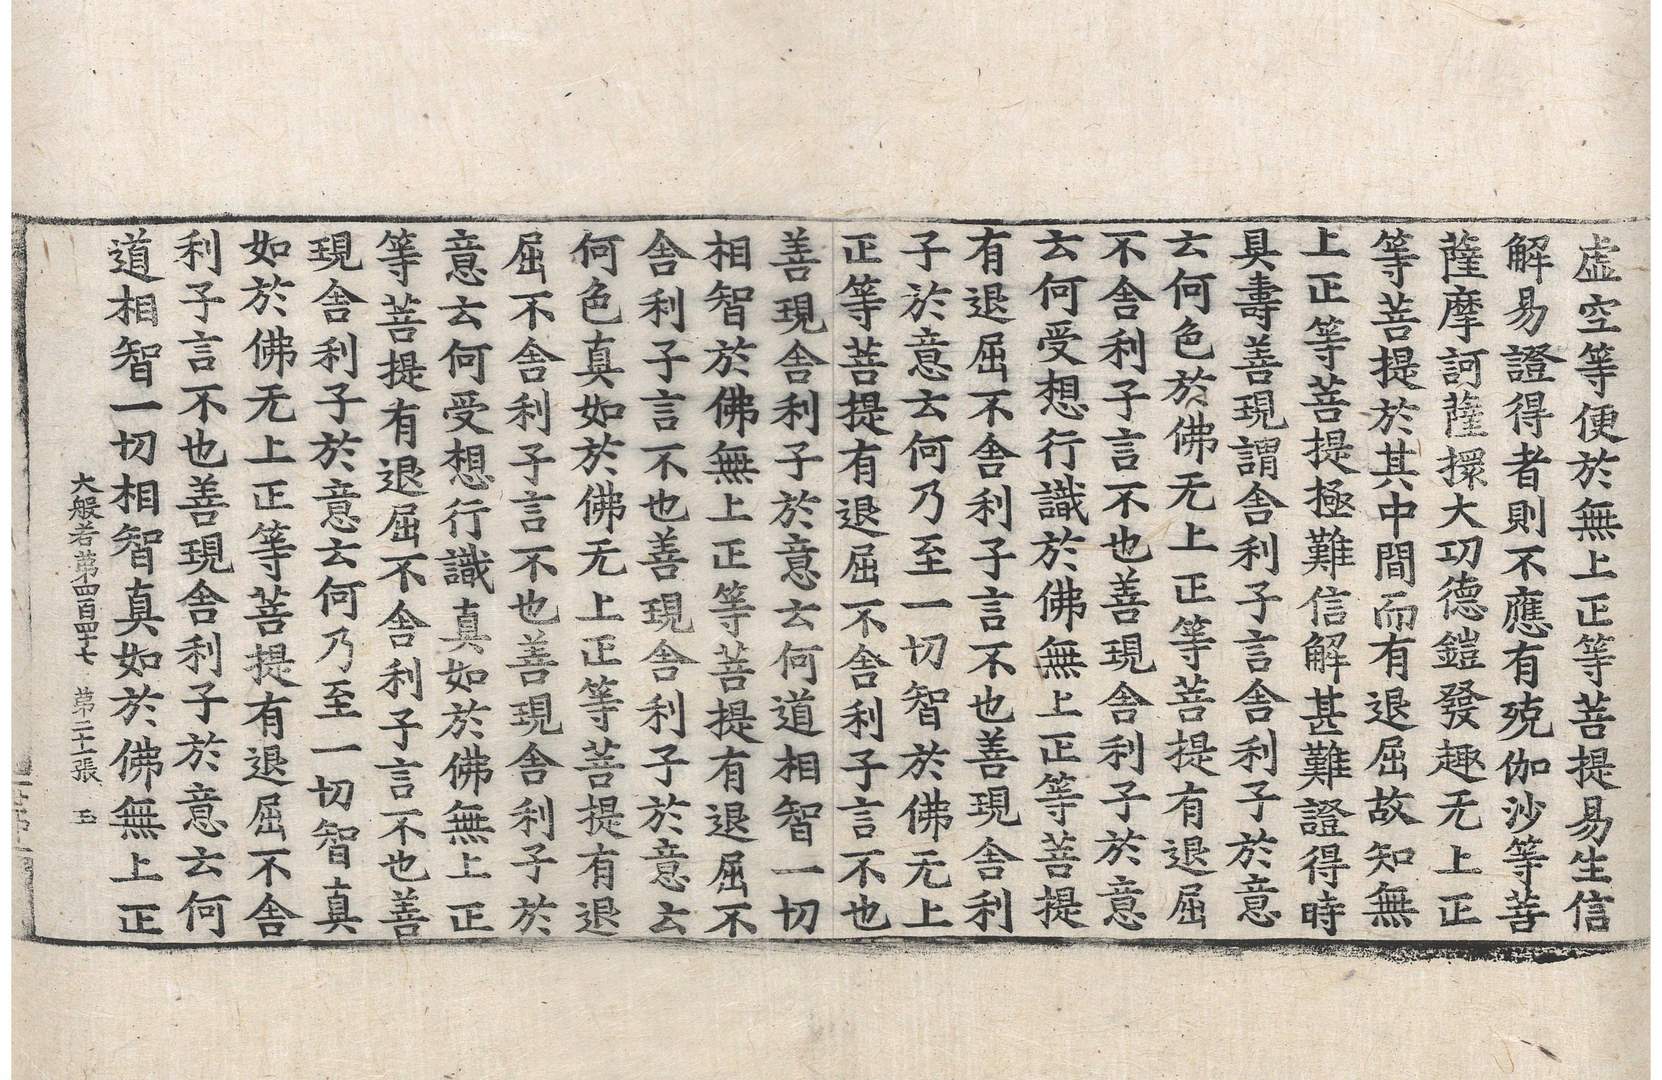 虛空等便於無上正等菩提易生信
解易證得者則不應有殑伽沙等菩
薩摩訶薩擐大功德鎧發趣无上正
等菩提於其中間而有退屈故知無
上正等菩提極難信解甚難證得時
具壽善現謂舍利子言舍利子於意
云何色於佛无上正等菩提有退屈
不舍利子言不也善現舍利子於意
云何受想行識於佛無上正等菩提
有退屈不舍利子言不也善現舍利
子於意云何乃至一切智於佛无上
正等菩提有退屈不舍利子言不也
善現舍利子於意云何道相智一切
相智於佛無上正等菩提有退屈不
舍利子言不也善現舍利子於意云
何色真如於佛无上正等菩提有退
屈不舍利子言不也善現舍利子於
意云何受想行識真如於佛無上正
等菩提有退屈不舍利子言不也善
現舍利子於意云何乃至一切智真
如於佛无上正等菩提有退屈不舍
利子言不也善現舍利子於意云何
道相智一切相智真如於佛無上正
大般若苐四百四十七 苐二十二張 玉